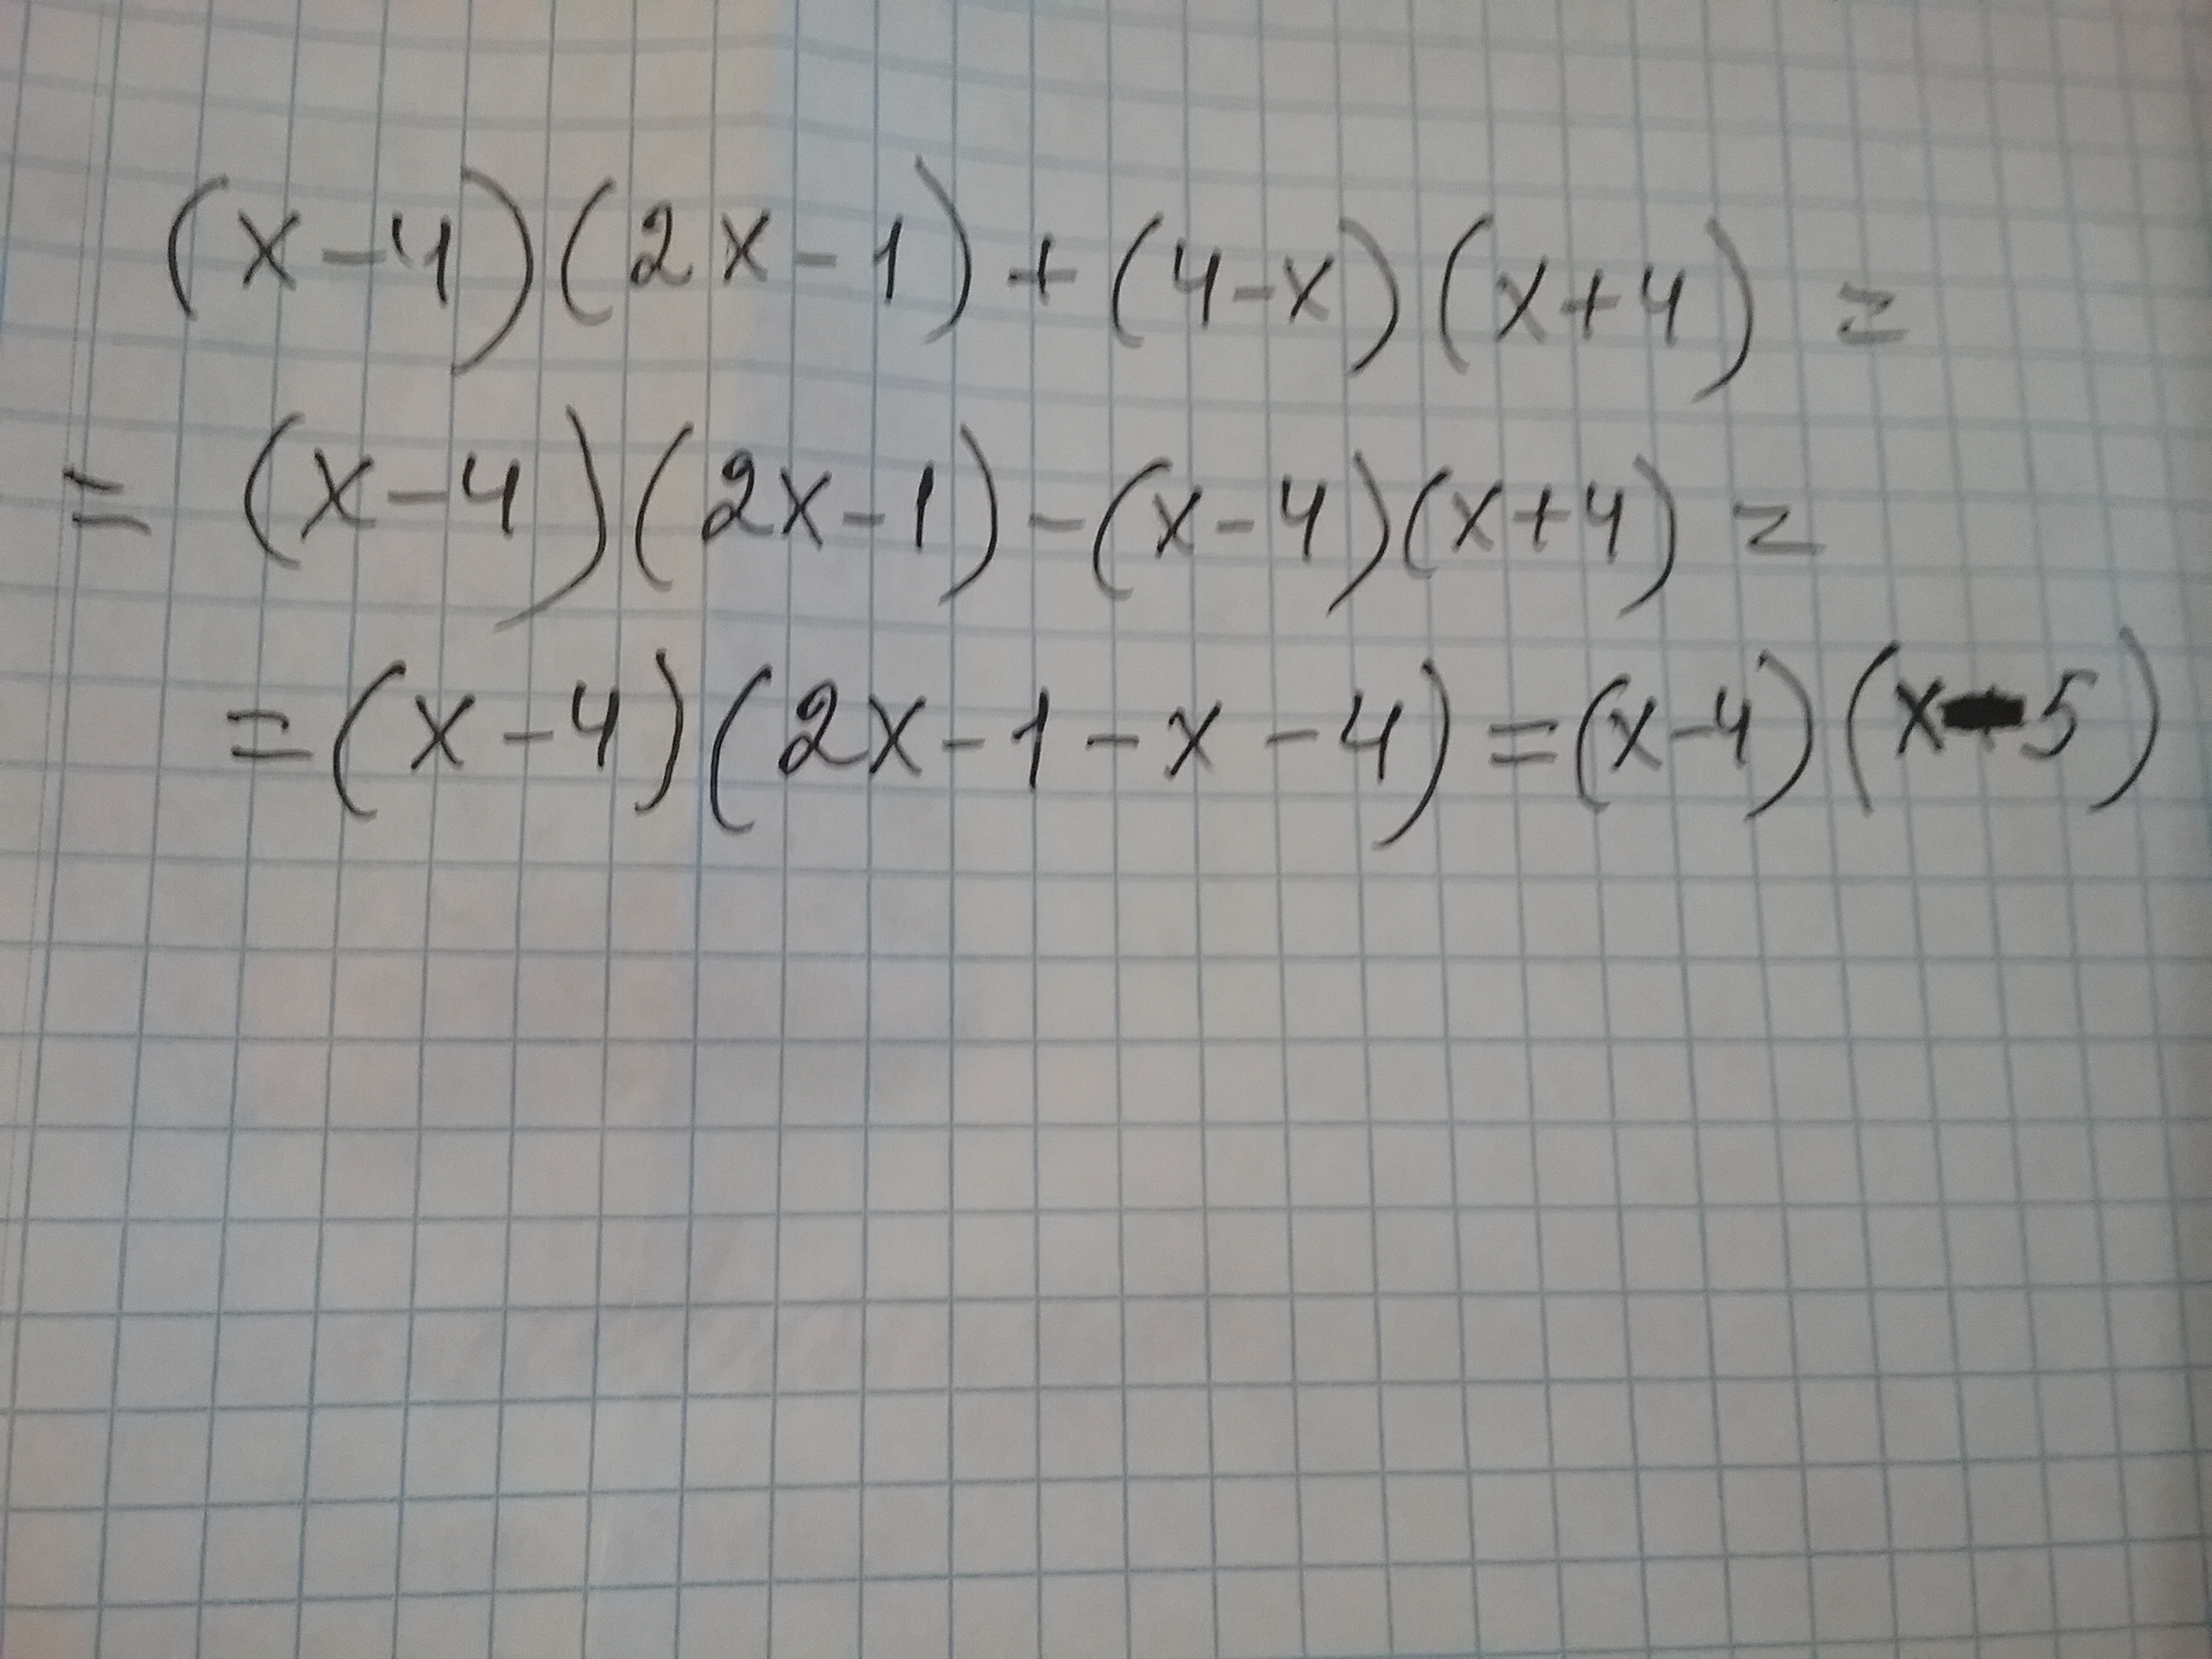 (x-4)(2x-1)+(4-x)(x+4)=
=(x-4)(2x-1)-(x-4)(x+4)=
=(x-4)(2x-1-x-4)=(x-4)(x-5)